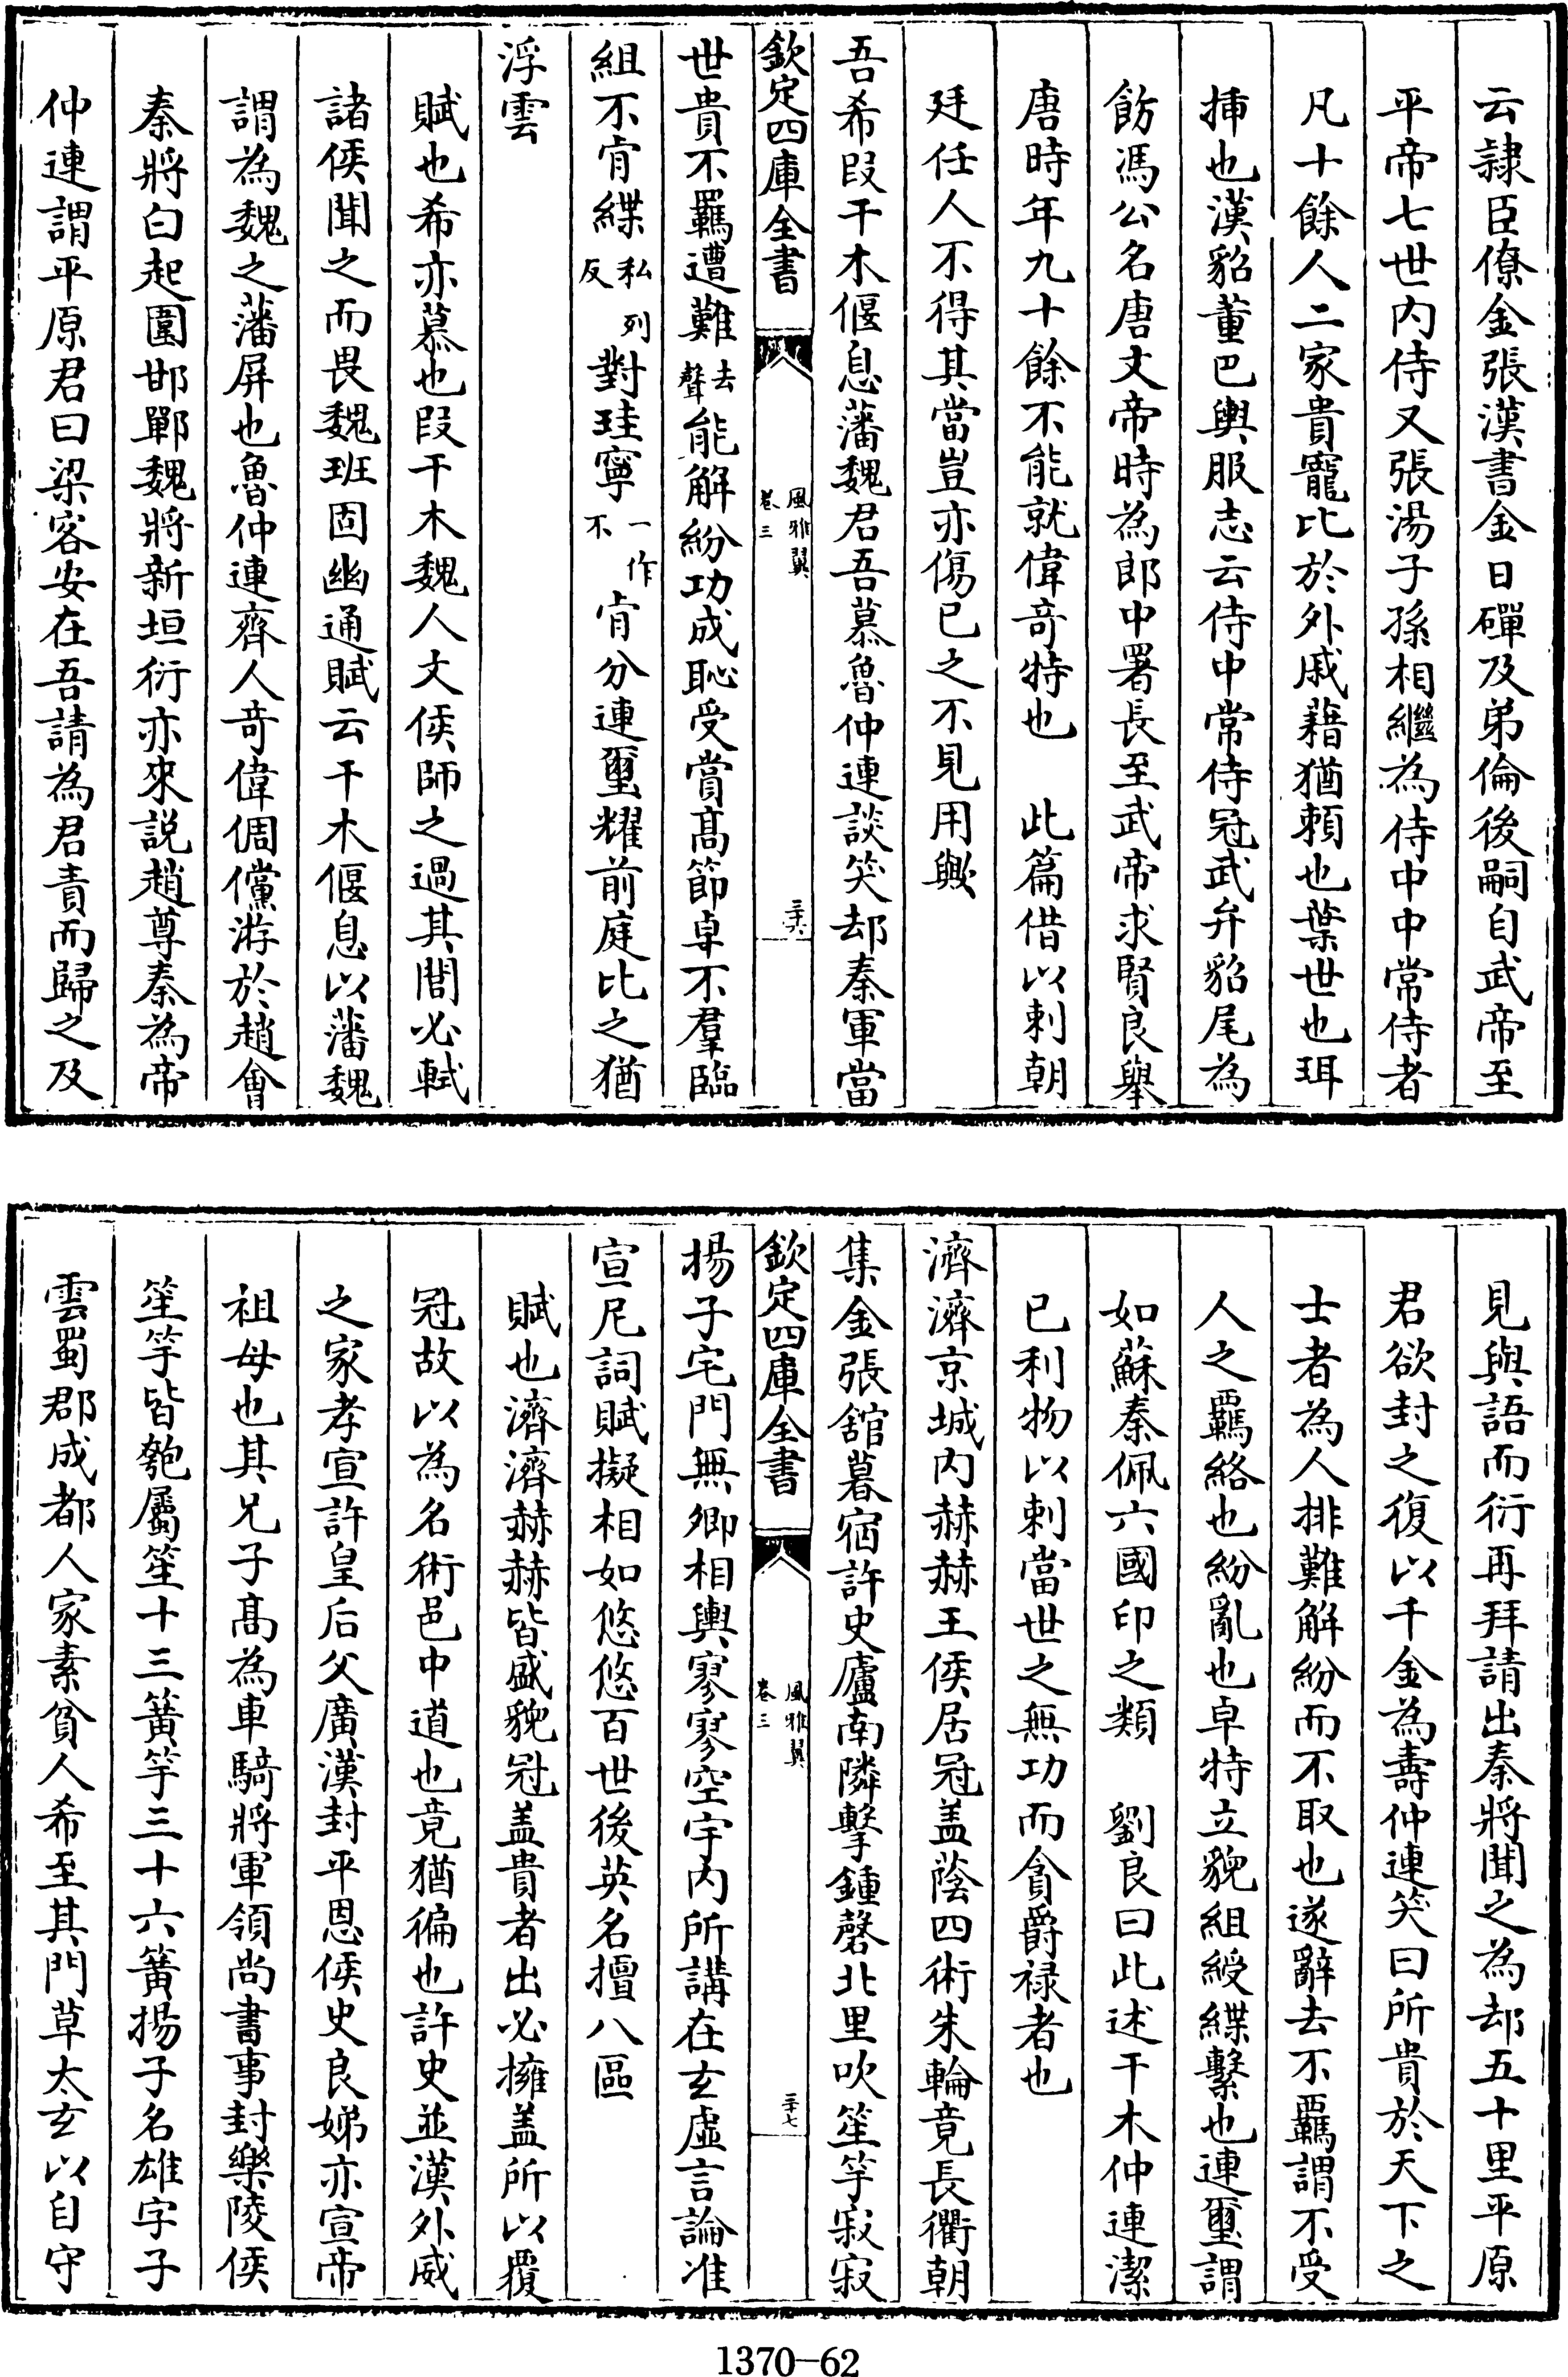 云隷臣僚金張漢書金日磾及弟倫後嗣自武帝至
平帝七世内侍又張湯子孫相繼為侍中中常侍者
凡十餘人二家貴寵比於外戚藉猶頼也葉世也珥
揷也漢貂董巴輿服志云侍中常侍冠武弁貂尾為
飾馮公名唐文帝時為郎中署長至武帝求賢良舉
唐時年九十餘不能就偉竒特也　此篇借以刺朝
廷任人不得其當豈亦傷已之不見用歟
吾希叚干木偃息藩魏君吾慕魯仲連談笑却秦軍當
欽定四庫全書
風雅翼
卷三
三六
世貴不羈遭難去聲能解紛功成恥受賞髙節卓不羣臨
組不肯緤私列反對珪寧一作不肯分連璽耀前庭比之猶
浮雲
賦也希亦慕也叚干木魏人文侯師之過其閭必軾
諸侯聞之而畏魏班固幽通賦云干木偃息以藩魏
謂為魏之藩屏也魯仲連齊人竒偉倜儻游於趙會
秦將白起圍邯鄲魏將新垣衍亦來說趙尊秦為帝
仲連謂平原君曰梁客安在吾請為君責而歸之及
見與語而衍再拜請出秦將聞之為却五十里平原
君欲封之復以千金為壽仲連笑曰所貴於天下之
士者為人排難解紛而不取也遂辭去不羈謂不受
人之羈絡也紛亂也卓特立貌組綬緤繫也連璽謂
如蘇秦佩六國印之類　劉良曰此述干木仲連潔
已利物以刺當世之無功而貪爵禄者也
濟濟京城内赫赫王侯居冠盖蔭四術朱輪竟長衢朝
集金張舘暮宿許史廬南隣擊鍾磬北里吹笙竽寂寂
欽定四庫全書
風雅翼
卷三
三七
揚子宅門無卿相輿寥寥空宇内所講在玄虛言論准
宣尼詞賦擬相如悠悠百世後英名擅八區
賦也濟濟赫赫皆盛貌冠盖貴者出必擁盖所以覆
冠故以為名術邑中道也竟猶徧也許史並漢外戚
之家孝宣許皇后父廣漢封平恩侯史良娣亦宣帝
祖母也其兄子髙為車騎將軍領尚書事封樂陵侯
笙竽皆匏屬笙十三簧竽三十六簧揚子名雄字子
雲蜀郡成都人家素貧人希至其門草太玄以自守
1370-62